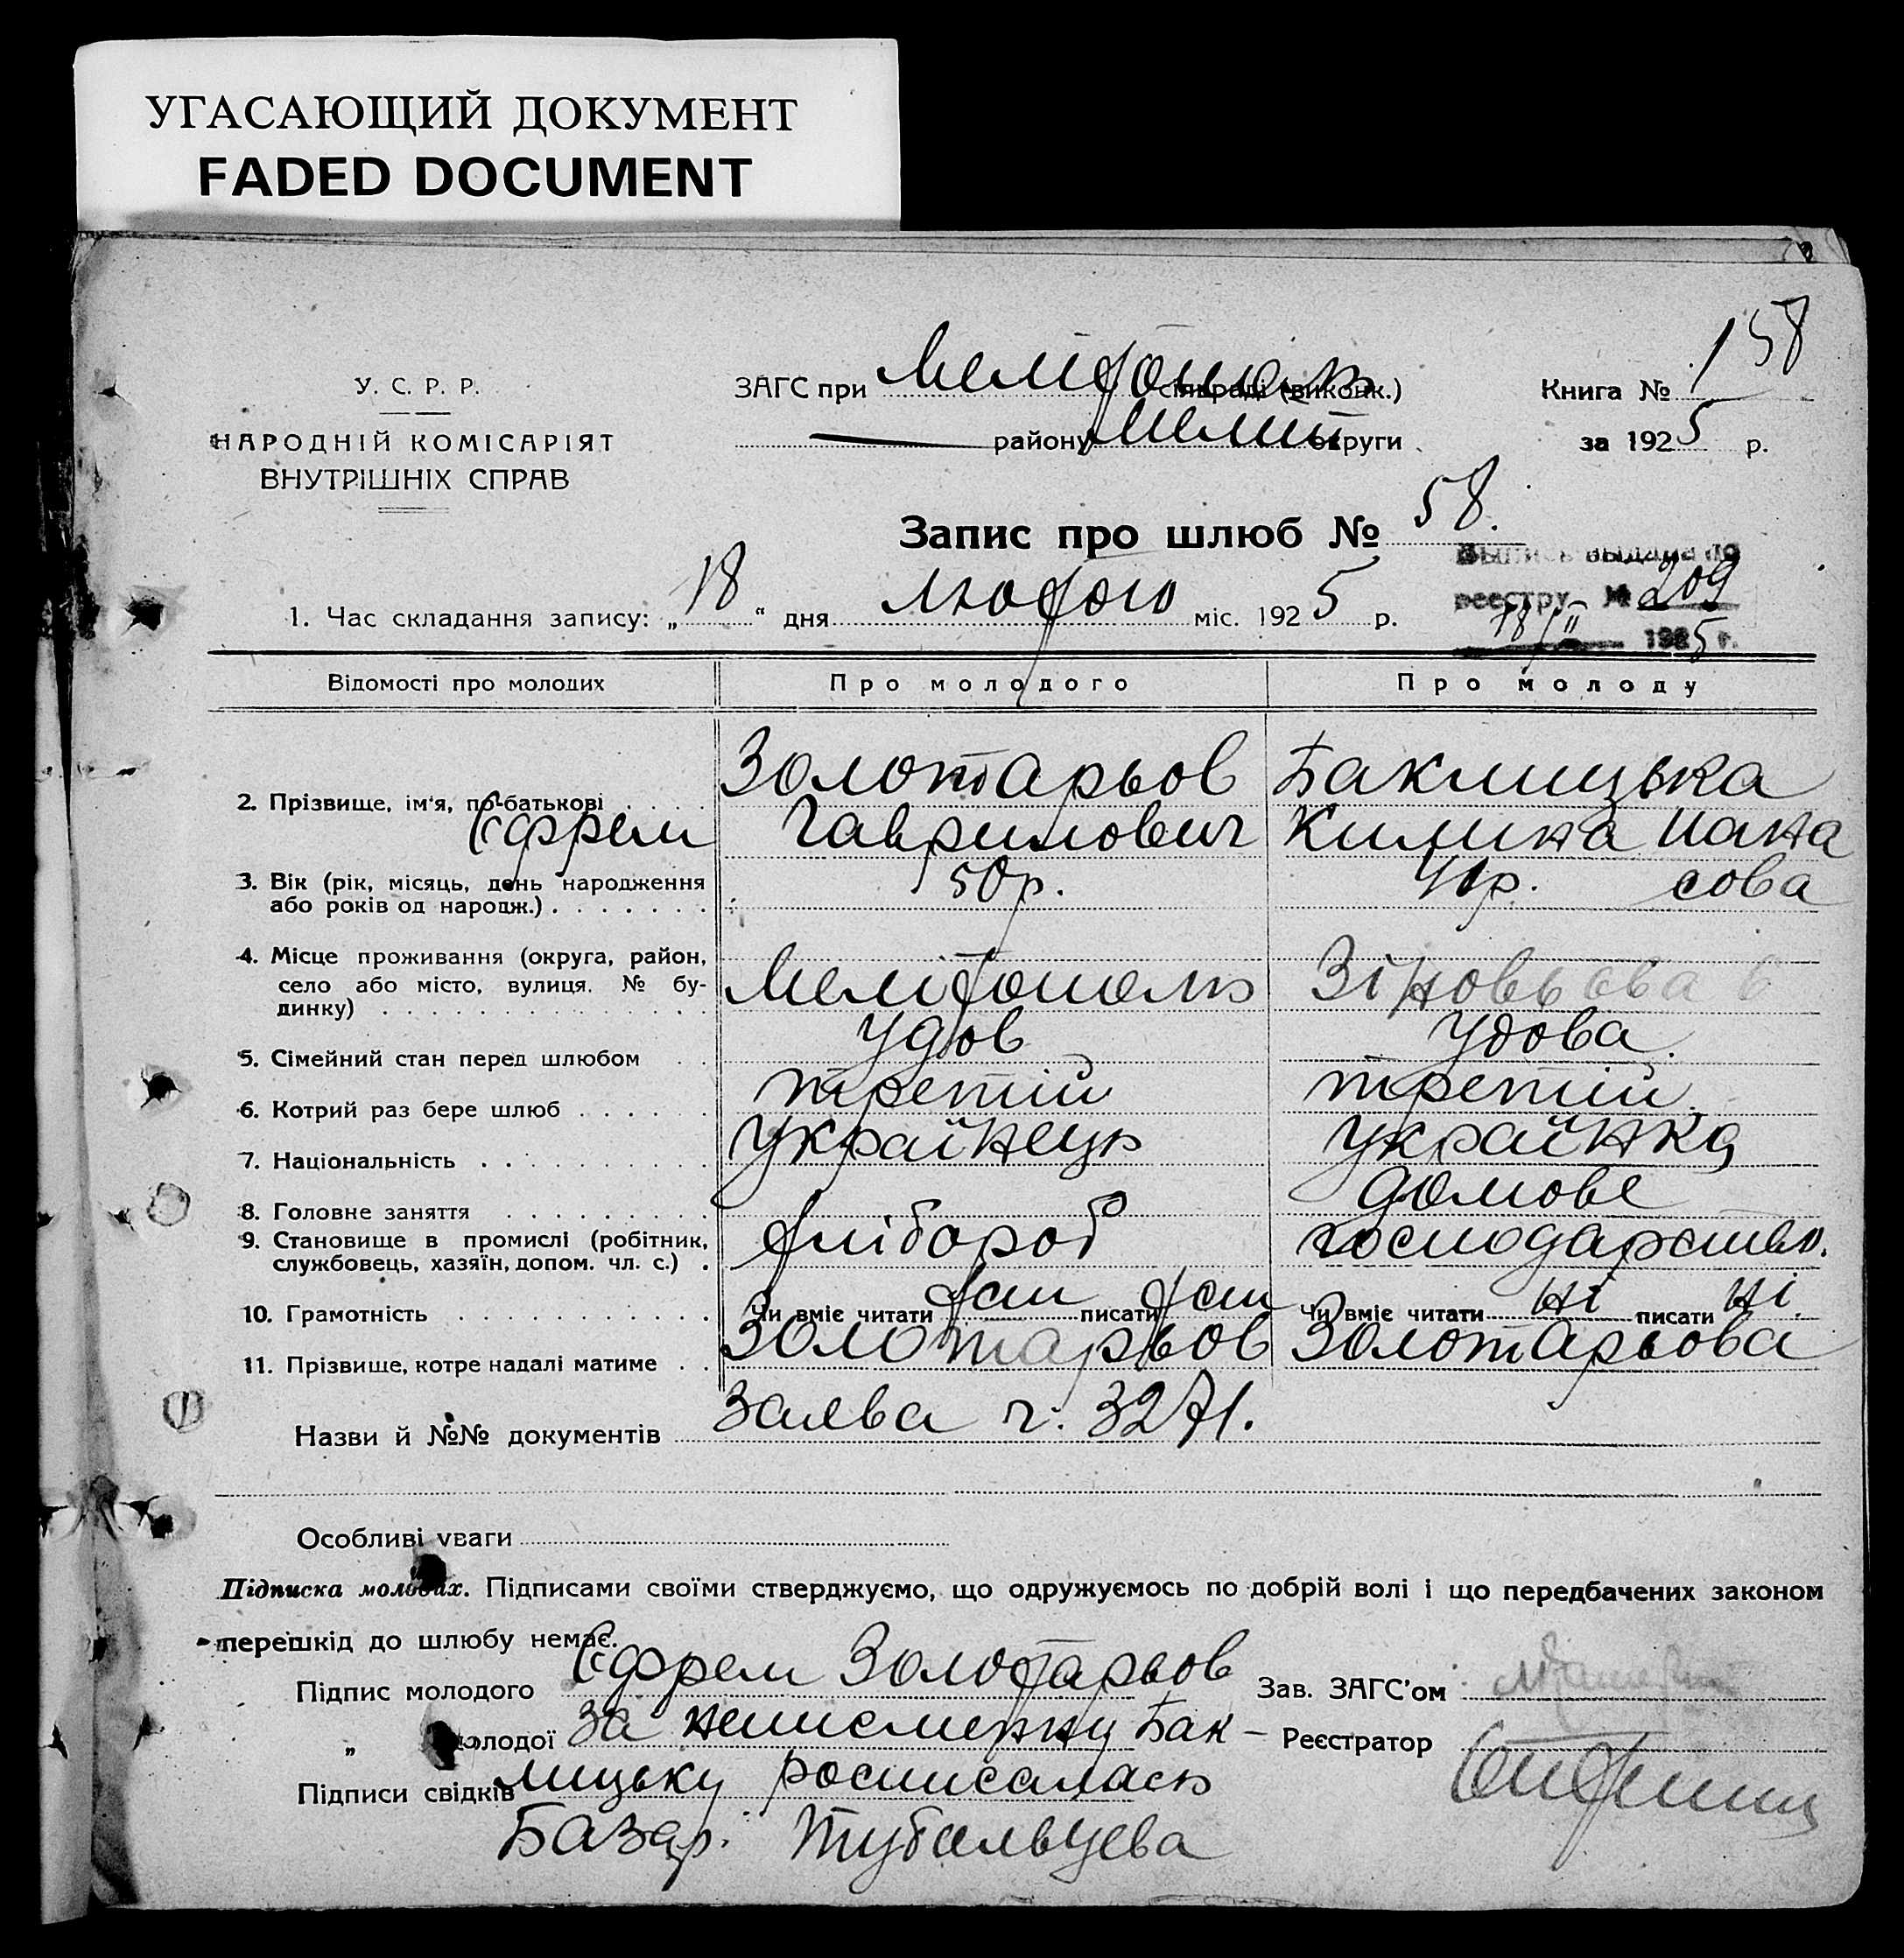 УГАСАЮЩИЙ ДОКУМЕНТ
FADED DOCUMENT
158
У. С. Р. Р.
НАРОДНІЙ КОМІСАРІЯТ
ВНУТРІШНІХ СПРАВ
ЗАГС при Мелітополь сільраді (виконк.)
району Меліт округи
Книга № 1
за 1925 р.
Запис про шлюб № 58.
Выпись выдана по
реестру № 209
18/II 1925 г.
1. Час складання запису: „18“ дня лютого міс. 1925 р.
Відомості про молодих Про молодого Про молоду
2. Прізвище, ім'я, по-батькові Золотарьов Баклицька
Єфрем Гаврилович Килина Пана
3. Вік (рік, місяць, день народження 50 р. 41р. сова
або років од народж.)
4. Місце проживання (округа, район,
село або місто, вулиця. № бу- Мелітополь Зіновьєва 6
динку)
5. Сімейний стан перед шлюбом удов удова.
6. Котрий раз бере шлюб третій третій
7. Національність Українець Українка
8. Головне заняття домове
9. Становище в промислі (робітник, хлібороб господарство.
службовець, хазяїн, допом. чл. с.)
10. Грамотність Чи вміє читати так писати так Чи вміє читати ні писати ні.
11. Прізвище, котре надалі матиме Золотарьов Золотарьова
Назви й №№ документів Заява ч. 3271.
Особливі уваги
Підписка молодих. Підписами своїми стверджуємо, що одружуємось по добрій волі і що передбачених законом
перешкід до шлюбу немає.
Підпис молодого Єфрем Золотарьов Зав. ЗАГС'ом
„ молодої За неписменну Бак- Реєстратор
Підписи свідків лицьку росписалась
Базар. Тубальцева